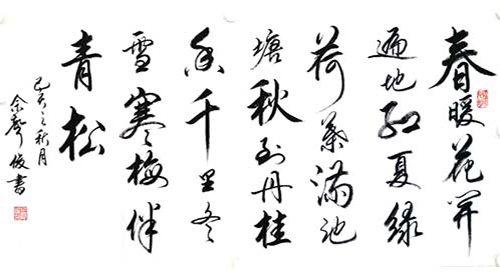 春暖花开
遍地红夏绿
荷葉满池
塘秋到丹桂
香千里冬
雪寒梅伴
青松
己亥之秋月
余俊書